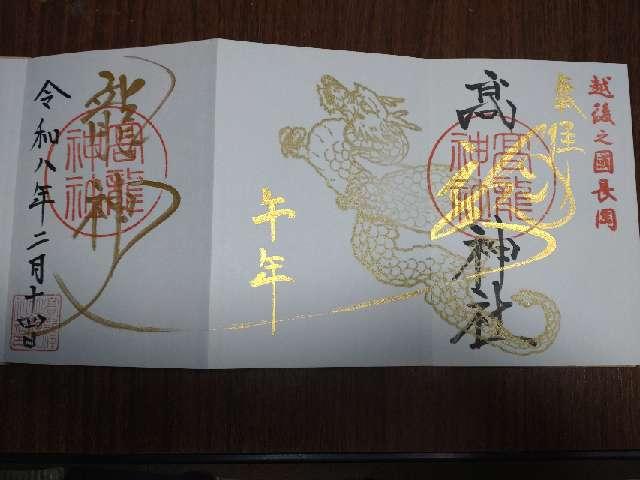 越後之國長岡
髙龍神社
高龍神社
午年
龍神
高龍神社
令和八年二月十四日